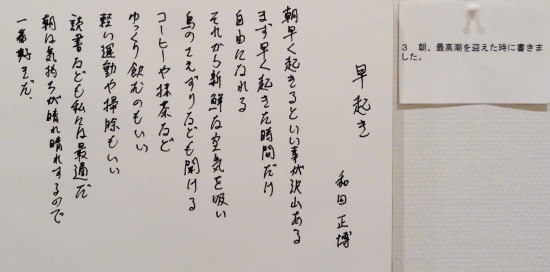 早起き
和田正博
朝早く起きるといい事が沢山ある
まず早く起きた時間だけ
自由になれる
それから新鮮な空気を吸い
鳥のさえずりなども聞ける
コーヒーや抹茶など
ゆっくり飲むのもいい
軽い運動や掃除もいい
読書なども私には最適だ
朝は気持ちが晴れ晴れするので
一番好きだ.
3　朝、最高潮を迎えた時に書きま
した。